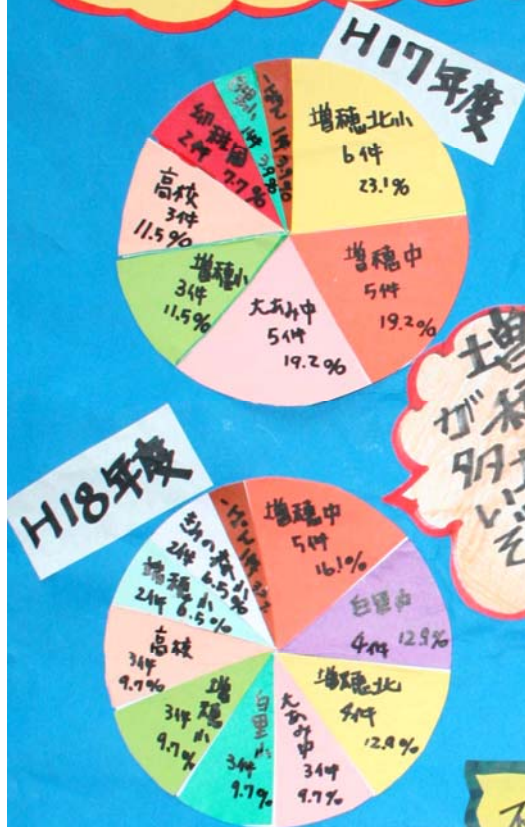 H17年度
増穂北小
6件
23.1%
増穂中
5件
19.2%
大あみ中
5件
19.2%
増穂小
3件
11.5%
高校
3件
11.5%
幼稚園
2件
7.7%
白里小
1件
3.9%
いっぱん
1件
3.9%
増
が
多
い
ぞ
H18年度
増穂中
5件
16.1%
白里中
4件 12.9%
増穂北
4件
12.9%
大あみ中
3件
9.7%
白里小
3件
9.7%
増穂小
3件
9.7%
高校
3件
9.7%
瑞穂小
2件 6.5%
2件 6.5%
いっぱん 1件